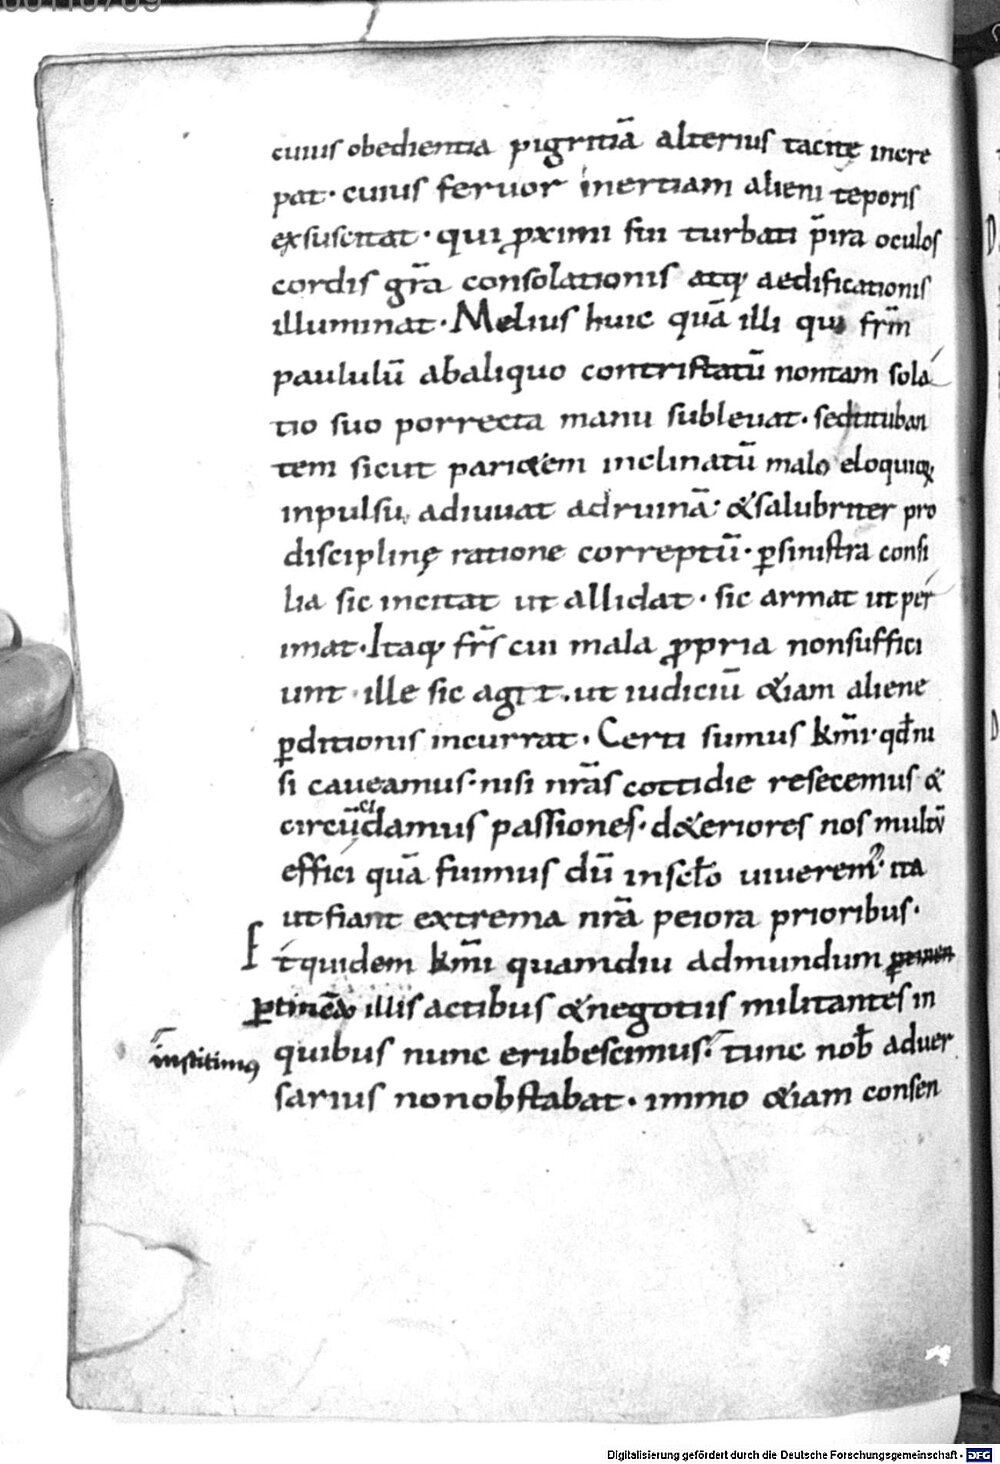 cuius obedientia pigritiā alterius tacitę incre
pat· cuius feruor inertiam alieni teporis
exsuscitat· qui ꝓximi sui turbati p̄ ira oculos
cordis grā consolationis atq; aedificationis
illuminat· Melius huic quā illi qui frm̄
paululū abaliquo contristatū nontam sola
tio suo porrecta manu subleuat· sedtituban
tem sicut parietem inclinatū malo eloquiiq;
inpulsu adiuuat adruinā· &salubriter pro
disciplinę ratione correptū· ꝑsinistra consi
lia sic incitat ut allidat· sic armat ut per
imat· Itaq; frs̄ cui mala ꝓpria nonsuffici
unt· ille sic agit· ut iudiciū &iam aliene
ꝑditionis incurrat· Certi sumus km̄i· qd̄ni
si caueamus· nisi nrās cottidie resecemus &
circūcidamus passiones· d&eriores nos multū
effici quā fuimus dū insclō uiuerem᷒· ita
utfiant extrema nrā peiora prioribus·
Et quidem km̄i quamdiu admundum
ꝑtinentib; illis actibus &negotiis militantes in
institimus quibus nunc erubescimus· tunc nob̄ aduer
sarius nonobstabat· immo &iam consen
Digitalisierung gefördert durch die Deutsche Forschungsgemeinschaft - DFG